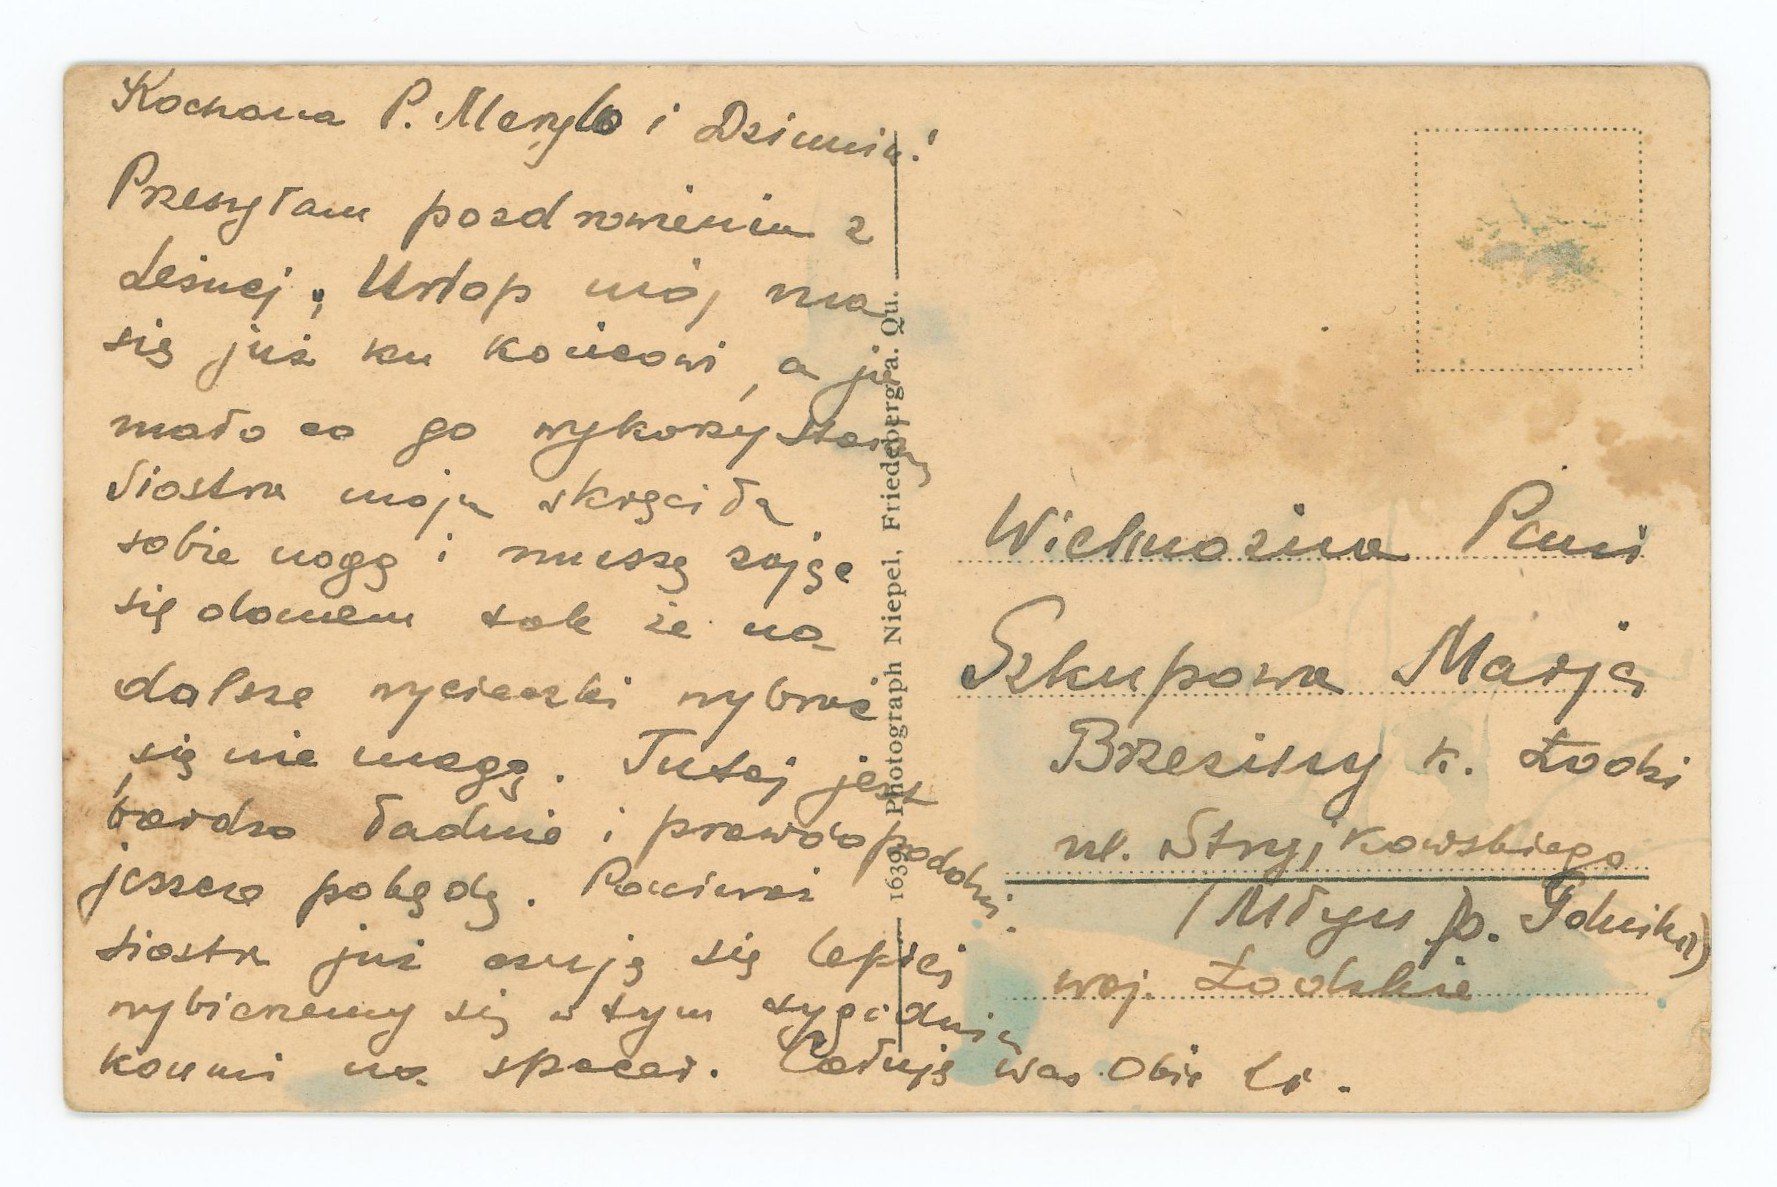 Kochana P. Marylo i Dziunniu!
Przesyłam pozdrowienia z
Leśnej. Urlop mój ma
się już ku końcowi, a ja
mało co go wykorzystam
Siostra moja skręciła
sobie nogę i muszę zająć
się domem tak że na
dalsze wycieczki wybrać
się nie mogę. Tutaj jest
bardzo ładnie i prawdopodobni.
jeszcze pobędę. Ponieważ
siostra już czuję się lepiej
wybierzemy się w tym tygodniu
końmi na spacer. Całuję was Obie
1639 Photograph Niepel, Friedeberg a. Qu.
Wielmożna Pani
Szkupowa Marja
Brzeziny k. Łodzi
ul. Stryjkowskiego
(Młyn p. Golnika)
woj. Łódzkie